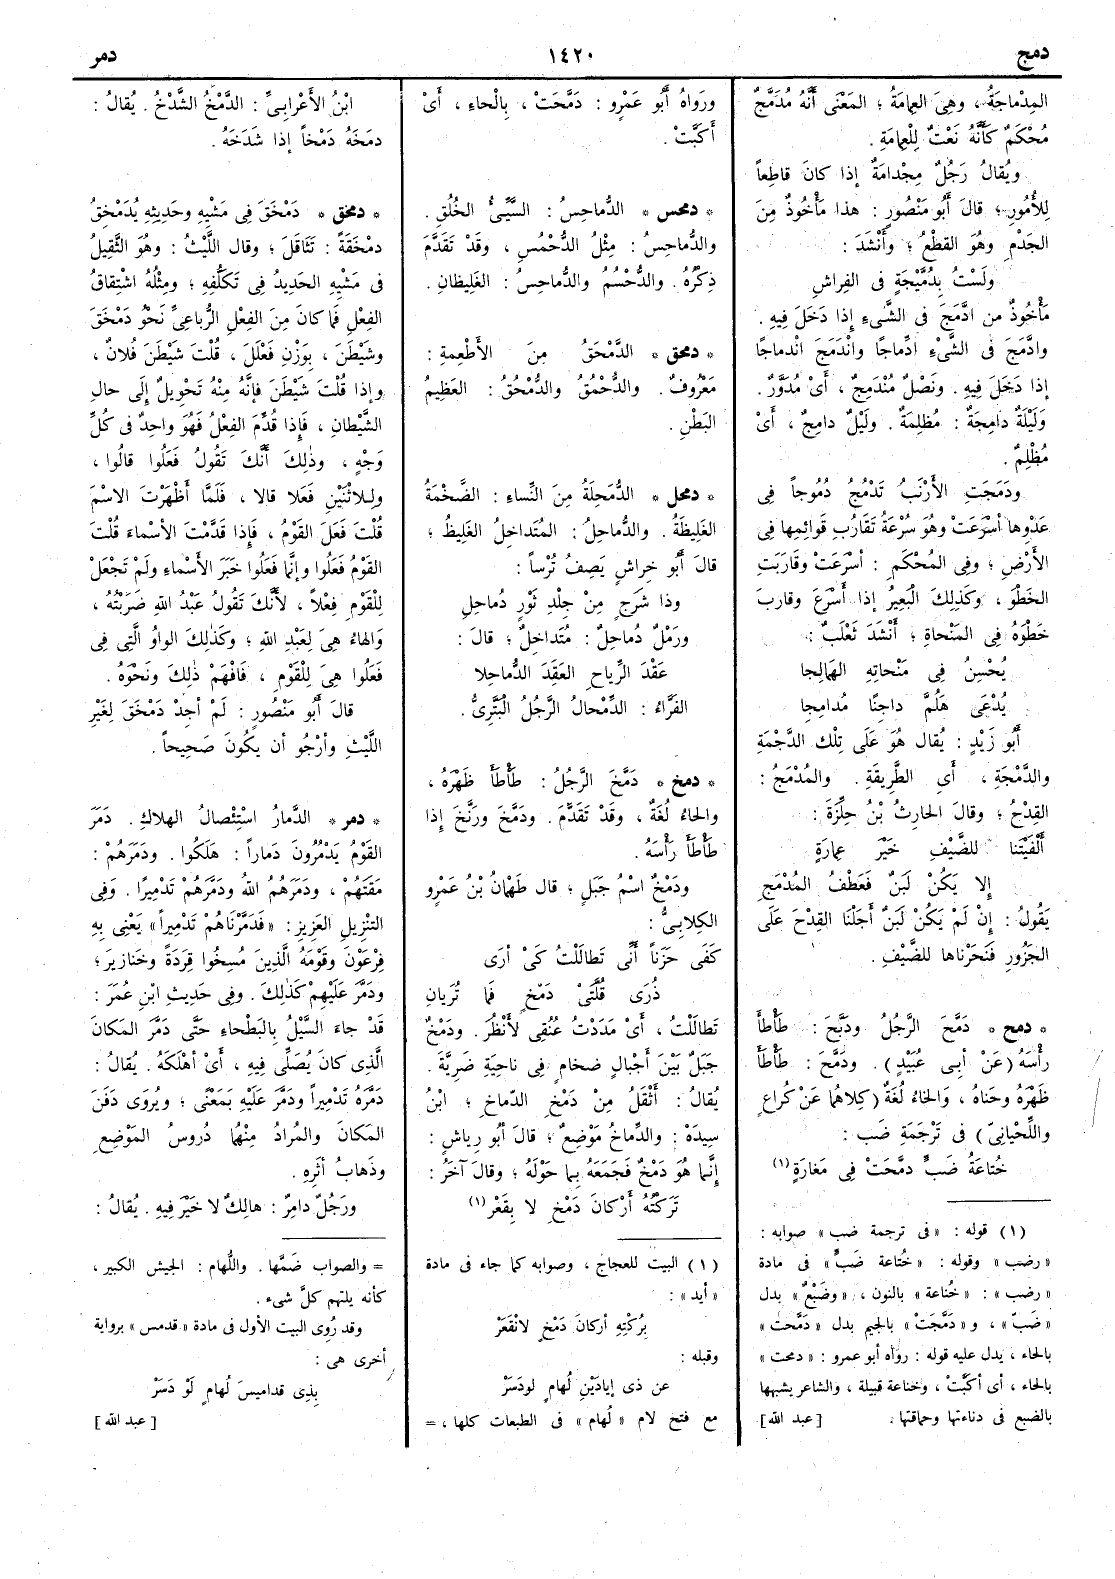 دمج
١٤٢٠
دمر
المِدْماجَةُ، وهِيَ العِمامَةُ ؛ المَعْنَى أَنَّهُ مُدَمَّجٌ
مُحْكَمٌ كَأَنَّهُ نَعْتٌ لِلْعِمامَةِ .
ويُقالُ رَجُلٌ مِجْدامَةٌ إذا كانَ قاطِعاً
لِلأُمُورِ ؛ قالَ أَبُو مَنْصُورٍ : هذا مَأْخُوذٌ مِنَ
الجَدْمِ وهُوَ القَطْعُ ؛ وأَنْشَدَ :
ولَسْتُ بِدُمَّيْجَةٍ فى الفِراشِ
مَأْخُوذٌ من ادَّمَجَ فى الشَّىْءِ إذا دَخَلَ فِيهِ .
وادَّمَجَ فى الشَّىْءِ ادِّماجاً وانْدَمَجَ انْدماجاً
إذا دَخَلَ فِيهِ . ونَصْلٌ مُنْدَمِجٌ ، أَىْ مُدَوَّرٌ .
ولَيْلَةٌ دامِجَةٌ : مُظلِمَةٌ . ولَيْلٌ دامِجٌ ، أَىْ
مُظْلِمٌ .
ودَمَجَتِ الأَرْنَبُ تَدْمُجُ دُمُوجاً فِى
عَدْوِها أَسْرَعَتْ وهُوَ سُرْعَةُ تَقارُبِ قَوائِمِها فِى
الأَرْضِ ؛ وفِى المُحْكَمِ : أَسْرَعَتْ وقارَبَتِ
الخَطْوَ ، وكَذلِكَ البَعِيرُ إذا أَسْرَعَ وقارَبَ
خَطْوَهُ فِى المَنْحاةِ ؛ أَنْشَدَ ثَعْلَبٌ :
يُحْسِنُ فِى مَنْحاتِهِ الهَمالِجا
يُدْعَى هَلُمَّ داجِنًا مُدامِجا
أَبُو زَيْدٍ : يُقال هُوَ عَلَى تِلْكَ الدَّجْمَةِ
والدَّمْجَةِ ، أَىِ الطَّرِيقَةِ . والمُدْمَجُ :
القِدْحُ ؛ وقالَ الحارِثُ بْنُ حِلِّزَةَ :
أَلْفَيْتَنا للضَّيْفِ خَيْرَ عِمارَةٍ
إلا يَكُنْ لَبَنٌ فَعَطْفُ المُدْمَجِ
يَقُولُ : إنْ لَمْ يَكُنْ لَبَنٌ أَجَلْنا القِدْحَ عَلَى
الجَزُورِ فَنَحَرْناها للضَّيْفِ .
* دمح * دَمَّحَ الرَّجُلُ ودَبَّحَ : طَأْطَأَ
رَأْسَهُ (عَنْ أَبِى عُبَيْدٍ) . ودَمَّحَ : طَأْطَأَ
ظَهْرَهُ وحَناهُ ، والخاءُ لُغَةٌ (كِلاهُما عَنْ كُراعٍ
واللِّحْيانِىّ) فى تَرْجَمَةِ ضَب :
خُتاعَةُ ضَبٍّ دمَّحَتْ فِى مَغارَةٍ(١)
(١) قوله : «فى ترجمة ضب» صوابه :
«رضب» وقوله : «خُتاعة ضَبٍّ» فى مادة
«رضب» : «خُناعة» بالنون ، «وضَبْعٌ» بدل
«ضَبّ» ، و«دَمَّجَتْ» بالجيم بدل «دَمَّحَتْ»
بالحاء ، يدل عليه قوله : رواه أبو عمرو : «دمحت»
بالحاء ، أى أكَبَّتْ ، وخناعة قبيلة ، والشاعر يشبهها
بالضبع فى دناءتها وحماقتها . [عبد الله]
ورَواهُ أَبُو عَمْرٍو : دَمَّحَتْ ، بِالْحاءِ ، أَىْ
أَكَبَّتْ .
* دمحس * الدُّماحِسُ : السَّيِّئُ الخُلُقِ .
والدُّماحِسُ : مِثْلُ الدُّحْمُسِ ، وقَدْ تَقَدَّمَ
ذِكْرُهُ . والدُّحْسُمُ والدُّماحِسُ : الغَلِيظانِ .
* دمحق * الدَّمْحَقُ مِنَ الأَطْعِمةِ :
مَعْرُوفٌ . والدُّحْمُقُ والدُّمْحُقُ : العَظِيمُ
البَطْنِ .
* دمحل * الدُّمَحِلَةُ مِنَ النِّساءِ : الضَّخْمَةُ
الغَلِيظَةُ . والدُّماحِلُ : المُتَداخِلُ الغَلِيظُ ؛
قالَ أَبُو خِراشٍ يَصِفُ تُرْساً :
وذا شَرَجٍ مِنْ جِلْدِ ثَوْرٍ دُماحِلِ
ورَمْلٌ دُماحِلٌ : مُتَداخِلٌ ؛ قالَ :
عَقْدَ الرِّياحِ العَقَدَ الدُّماحِلا
الفَرَّاءُ : الدِّمْحالُ الرَّجُلُ الْبَتَرِىُّ .
* دمخ * دَمَّخَ الرَّجُلُ : طَأْطَأَ ظَهْرَهُ ،
والحاءُ لُغَةٌ ، وقَدْ تَقَدَّمَ . ودَمَّخَ ورَنَّخَ إذا
طَأْطَأَ رَأْسَهُ .
ودَمْخٌ اسْمُ جَبَلٍ ؛ قال طَهْمانُ بْنُ عَمْرٍو
الكِلابِىُّ :
كَفَى حَزَناً أَنِّى تَطالَلْتُ كَىْ أَرَى
ذُرَى قُلَّتَىْ دَمْخٍ فَما تُرَيانِ
تَطالَلْتُ ، أَىْ مَدَدْتُ عُنُقِى لأَنْظُرَ . ودَمْخٌ
جَبَلٌ بَيْنَ أَجْبالٍ ضخامٍ فِى ناحِيَةِ ضَرِيَّةَ .
يُقالُ : أَثْقَلُ مِنْ دَمْخِ الدِّماخِ ؛ ابْنُ
سِيدَهْ : والدِّماخُ مَوْضِعٌ ؛ قالَ أَبُو رِياشٍ :
إنَّما هُوَ دَمْخٌ فَجَمَعَهُ بِما حَوْلَهُ ؛ وقالَ آخَرُ :
تَرَكْتُهُ أَرْكانَ دَمْخٍ لا بِقَعْرْ(١)
(١) البيت للعجاج ، وصوابه كما جاء فى مادة
«أيد» :
بِرُكْنِهِ أركانَ دَمْخٍ لانْقَعَرْ
وقبله :
عن ذى إيادَيْنِ لُهامٍ لودَسَرْ
مع فتح لام «لُهام» فى الطبعات كلها ، =
ابْنُ الأَعْرابِىِّ : الدَّمْخُ الشَّدْخُ . يُقالُ :
دمَخَهُ دَمْخاً إذا شَدَخَهُ .
* دمخق * دَمْخَقَ فِى مَشْيِهِ وحَدِيثِهِ يُدَمْخِقُ
دمْخَقَةً : تَثاقَلَ ؛ وقال اللَّيْثُ : وهُوَ الثَّقِيلُ
فى مَشْيِهِ الحَدِيدُ فِى تَكَلُّفِهِ ؛ ومِثْلُهُ اشْتِقاقُ
الفِعْلِ فَما كانَ مِنَ الفِعْلِ الرُّباعِىِّ نَحْوُ دَمْخَقَ
وشَيْطَنَ ، بِوَزْنِ فَعْلَلَ ، قُلْتَ شَيْطَنَ فُلانٌ ،
وإذا قُلْتَ شَيْطَنَ فإنَّهُ مِنْهُ تَحْوِيلٌ إلَى حالِ
الشَّيْطانِ ، فَإذا قُدِّمَ الفِعْلُ فَهُوَ واحِدٌ فى كُلِّ
وَجْهٍ ، وذٰلِكَ أَنَّكَ تَقُولُ فَعَلُوا قالُوا ،
ولِلاثْنَيْنِ فَعَلا قالا ، فَلَمَّا أَظْهَرْتَ الاسْمَ
قُلْتَ فَعَلَ القَوْمُ ، فَإذا قَدَّمْتَ الأَسْماءَ قُلْتَ
القَوْمُ فَعَلُوا وإنَّما فَعَلُوا خَبَرَ الأَسْماءِ ولَمْ تَجْعَلْ
لِلْقَوْمِ فِعْلاً ، لأَنَّكَ تَقُولُ عَبْدُ اللهِ ضَرَبْتُهُ ،
والهاءُ هِىَ لِعَبْدِ اللهِ ؛ وكَذٰلِكَ الواوُ الَّتِى فِى
فَعَلُوا هِىَ لِلْقَوْمِ ، فَافْهَمْ ذٰلِكَ ونَحْوَهُ .
قالَ أَبُو مَنْصُورٍ : لَمْ أَجِدْ دَمْخَقَ لِغَيْرِ
اللَّيْثِ وأَرْجُو أن يكُونَ صَحِيحاً .
* دمر * الدَّمارُ استِئْصالُ الهلاكِ . دَمَرَ
القَوْمُ يَدْمُرُونَ دَماراً : هَلَكُوا . ودَمَرَهُمْ :
مَقَتَهُمْ ، ودَمَرَهُمُ اللهُ ودَمَّرَهُمْ تَدْمِيرًا . وَفِى
التنْزِيلِ العَزِيزِ : «فَدَمَّرْناهُمْ تَدْمِيراً» يَعْنِى بِهِ
فِرْعَوْنَ وقَوْمَهُ الَّذِينَ مُسِخُوا قِرَدَةً وخَنازِيرَ ؛
ودَمَّرَ عَلَيْهِمْ كَذٰلِكَ . وفِى حَدِيثِ ابْنِ عُمَرَ :
قَدْ جاءَ السَّيْلُ بِالبَطْحاءِ حَتَّى دَمَّرَ المَكانَ
الَّذِى كانَ يُصَلِّى فِيهِ ، أَىْ أَهْلَكَهُ . يُقالُ :
دَمَّرَهُ تَدْمِيراً ودَمَّرَ عَلَيْهِ بِمَعْنًى ؛ ويُروَى دَفَنَ
المَكانَ والمُرادُ مِنْهُما دُروسُ المَوْضِعِ
وذَهابُ أَثَرِهِ .
ورَجُلٌ دامِرٌ : هالِكٌ لا خَيْرَ فِيهِ . يُقالُ :
= والصواب ضَمُّها . واللُّهام : الجيش الكبير ،
كأنه يلتهم كلَّ شىء .
وقد رُوِى البيت الأول فى مادة «قدمس» برواية
أخرى هى :
بِذِى قداميسَ لُهامٍ لَوْ دَسَرْ
[عبد الله]